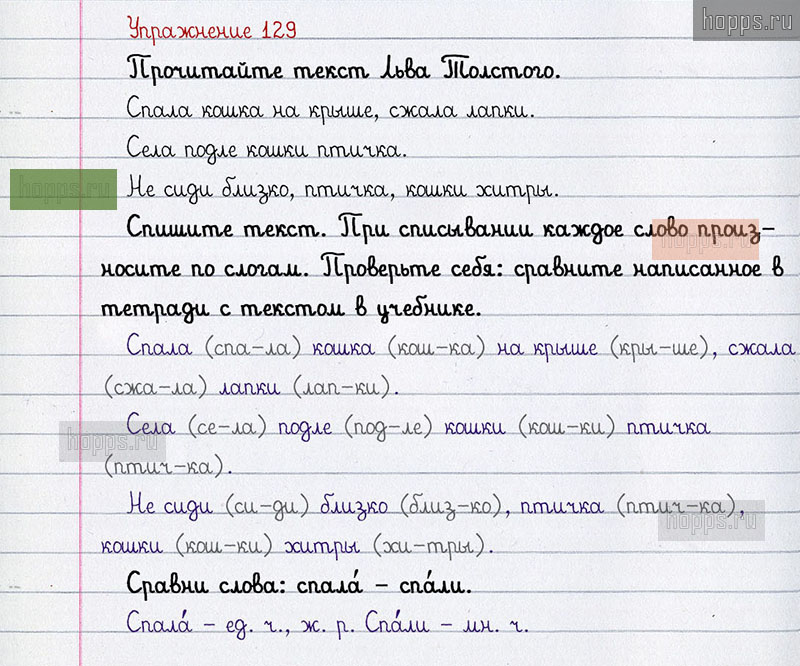 hopps.ru
Упражнение 129
Прочитайте текст Льва Толстого.
Спала кошка на крыше, сжала лапки.
Села подле кошки птичка.
hopps.ru
Не сиди близко, птичка, кошки хитры.
Спишите текст. При списывании каждое слово произ-
hopps.ru
носите по слогам. Проверьте себя: сравните написанное в
тетради с текстом в учебнике.
Спала (спа-ла) кошка (кош-ка) на крыше (кры-ше), сжала
(сжа-ла) лапки (лап-ки).
Села (се-ла) подле (под-ле) кошки (кош-ки) птичка
hopps.ru
(птич-ка).
Не сиди (си-ди) близко (близ-ко), птичка (птич-ка),
hopps.ru
кошки (кош-ки) хитры (хи-тры).
Сравни слова: спала́ – спа́ли.
Спала́ – ед. ч., ж. р. Спа́ли – мн. ч.